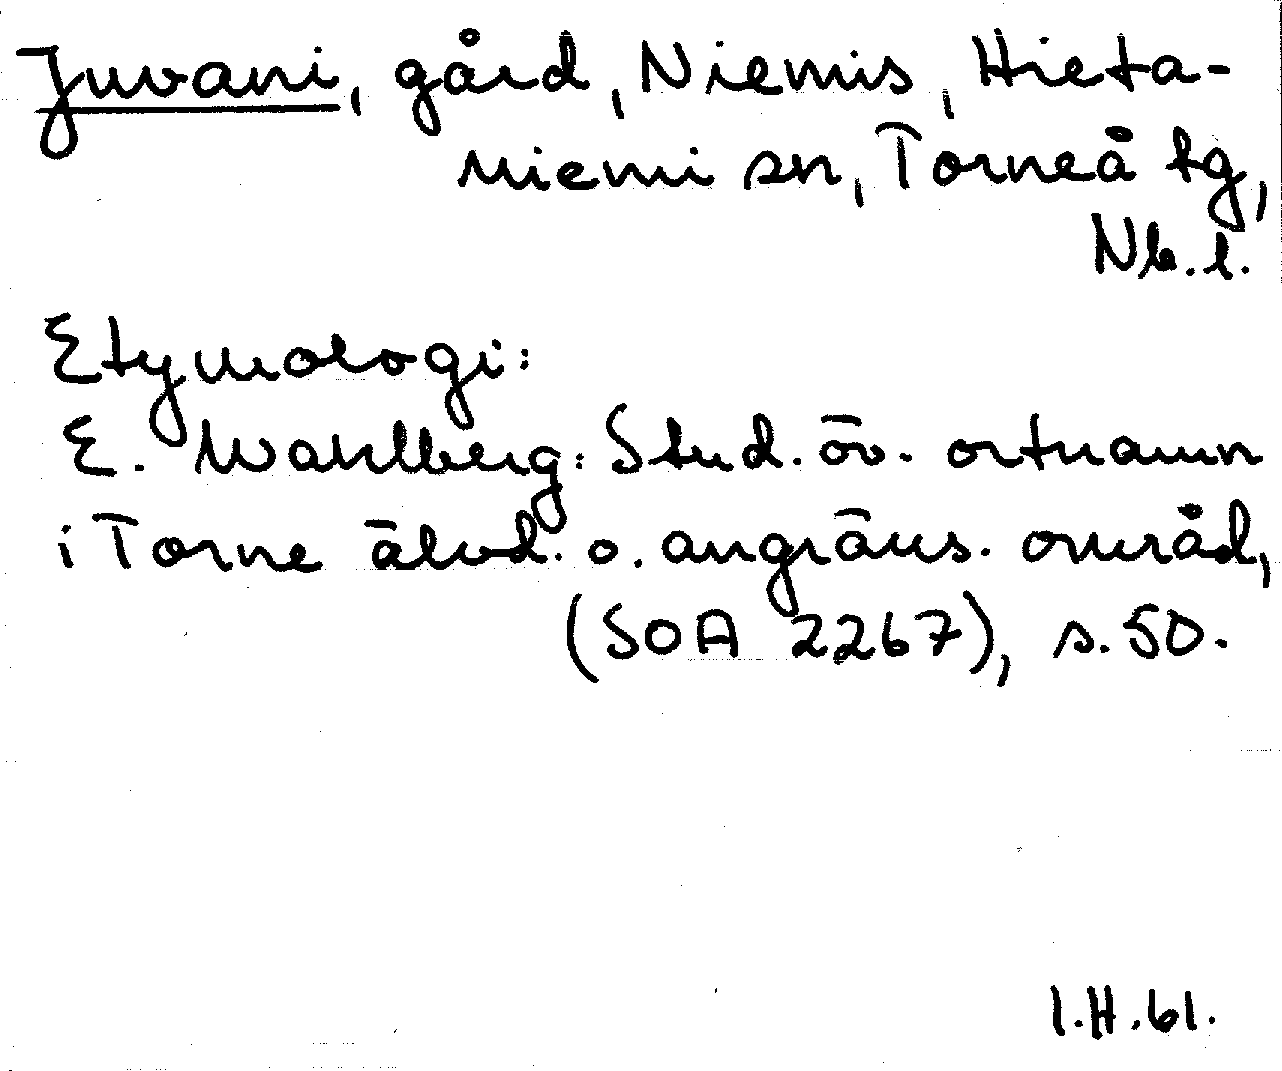 Juvani, gård, Niemis, Hieta-
niemi sn, Torneå tg,
Nb.l.
Etymologi:
E. Wahlberg: Stud. öv. ortnamn
i Torne älvd. o. angräns. område,
(SOA 2267), s. 50.
I.H.61.